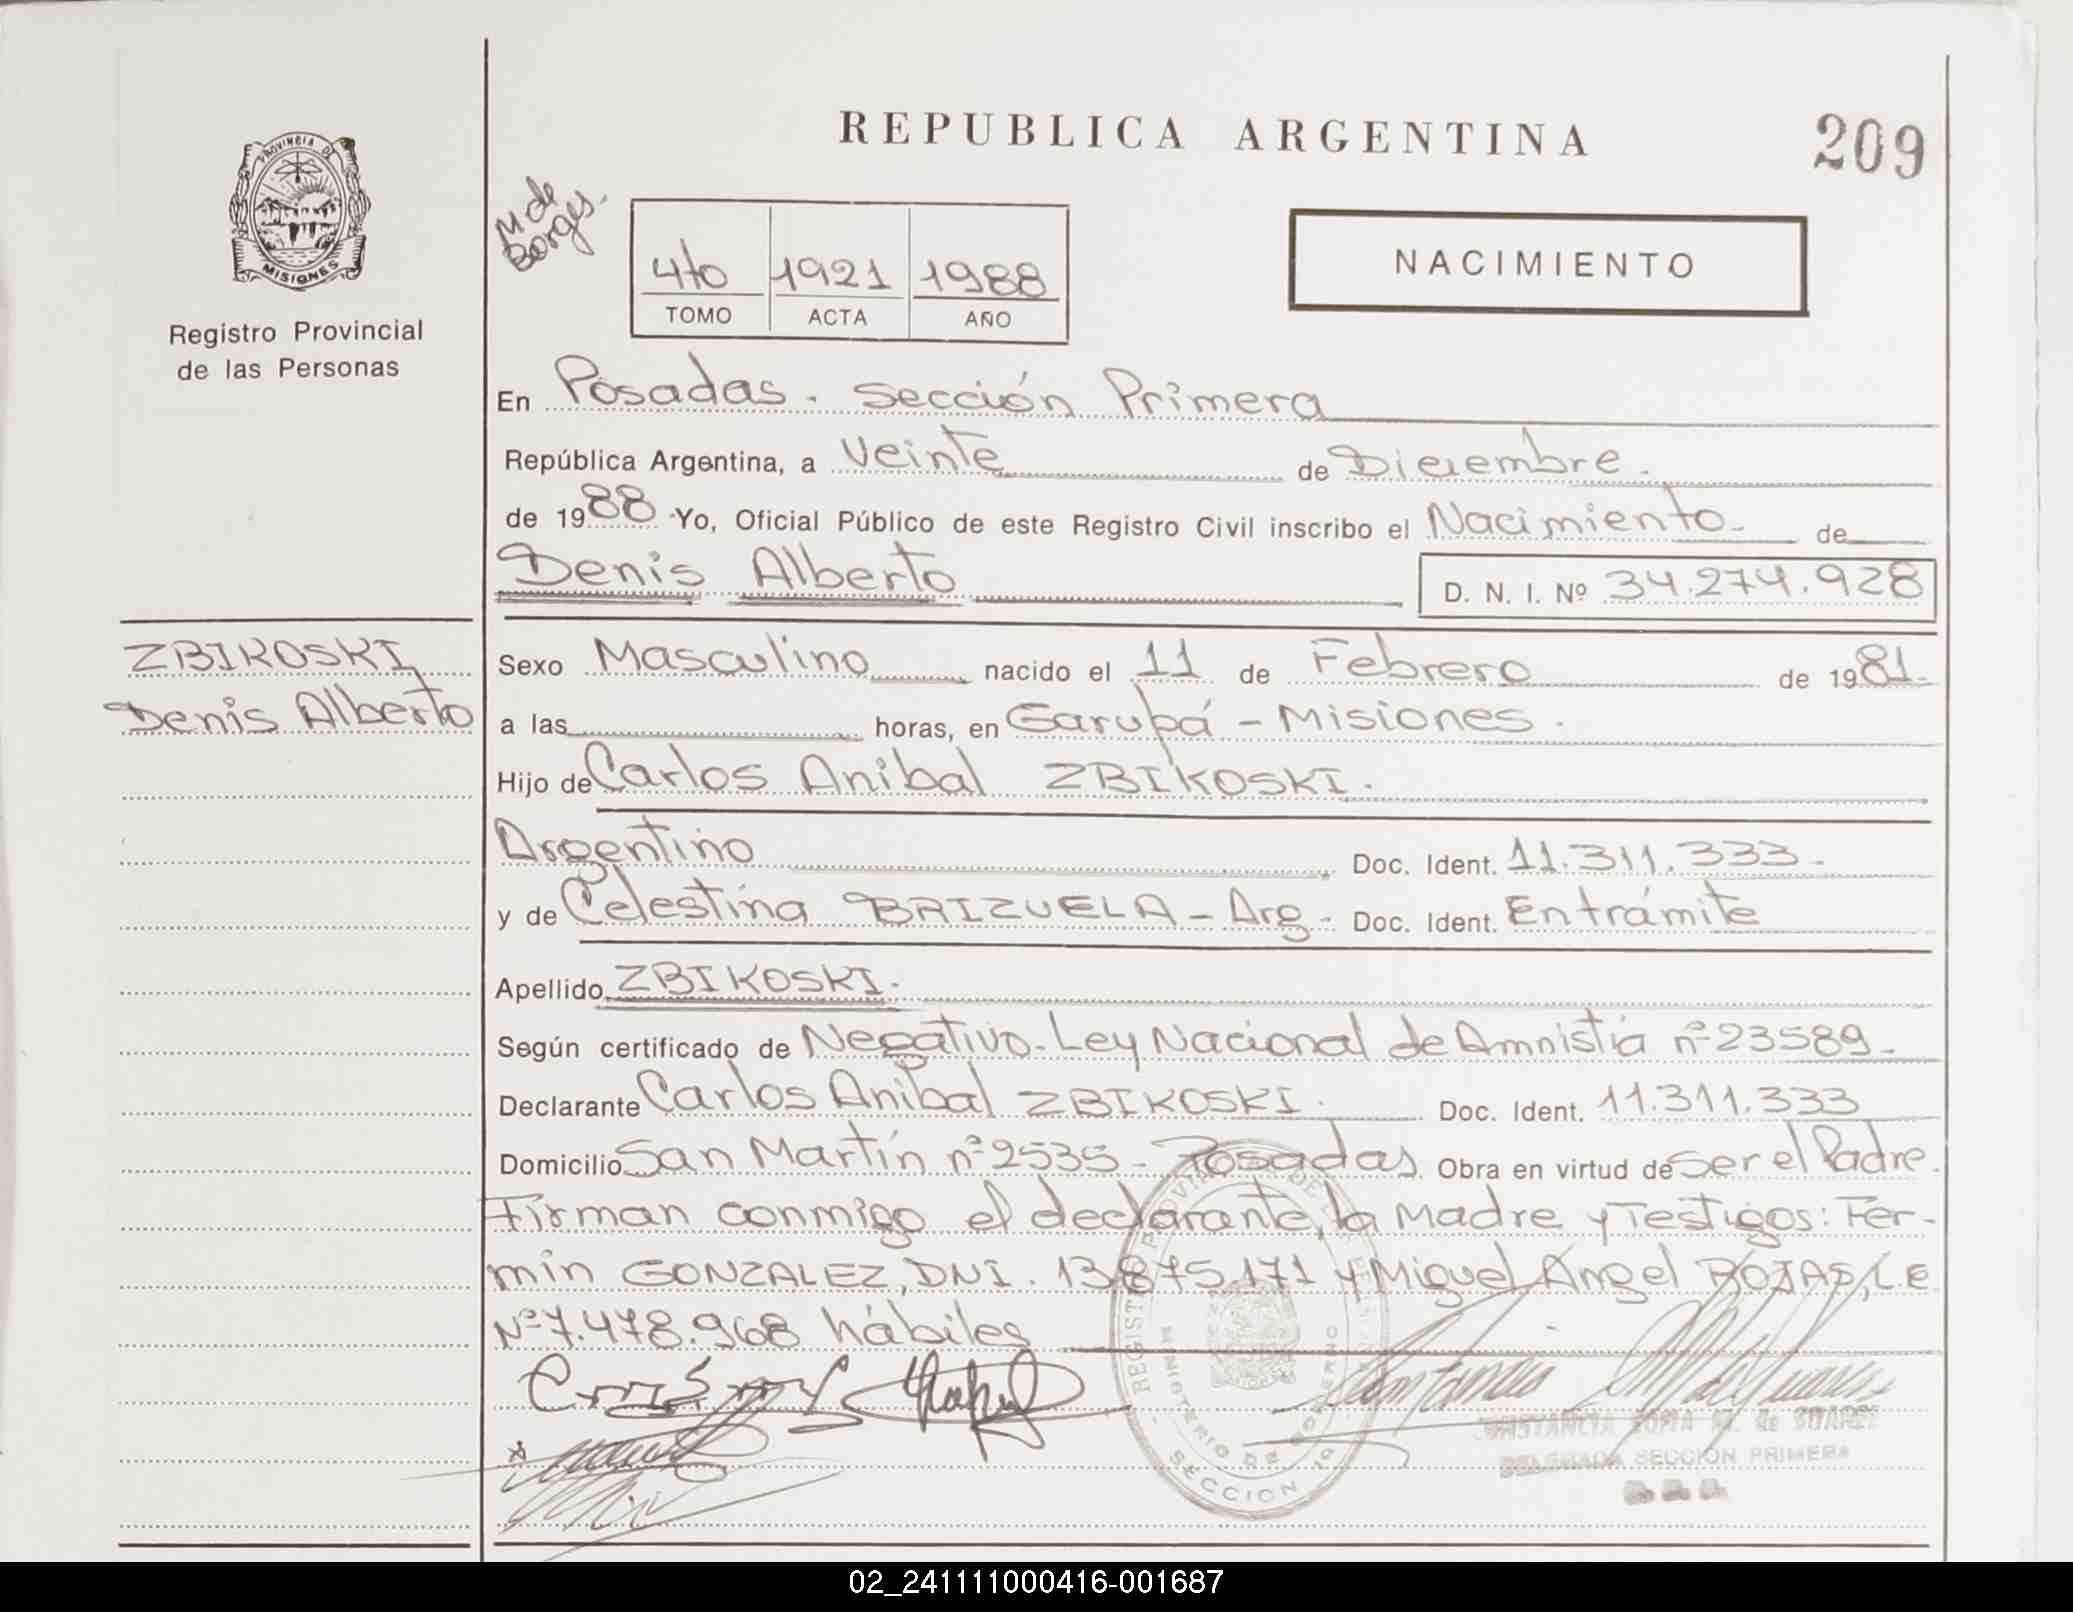 REPUBLICA ARGENTINA
209
PROVINCIA DE
MISIONES
Registro Provincial
de las Personas
M de
Borges.
4to 1921 1988
TOMO ACTA AÑO
NACIMIENTO
En Posadas. Sección Primera
República Argentina, a Veinte de Diciembre.
de 1988 Yo, Oficial Público de este Registro Civil inscribo el Nacimiento de
Denis Alberto D. N. I. Nº 34.274.928
ZBIKOSKI
Denis Alberto
Sexo Masculino nacido el 11 de Febrero de 1981.
a las horas, en Garupá - Misiones.
Hijo de Carlos Anibal ZBIKOSKI.
Argentino Doc. Ident. 11.311.333.
y de Celestina BRIZUELA - Arg. Doc. Ident. En trámite
Apellido ZBIKOSKI.
Según certificado de Negativo - Ley Nacional de Amnistía nº 23589.
Declarante Carlos Anibal ZBIKOSKI. Doc. Ident. 11.311.333
Domicilio San Martín nº 2535 - Posadas. Obra en virtud de Ser el Padre.
Firman conmigo el declarante, la Madre y Testigos: Fer-
min GONZALEZ, DNI. 13875171 y Miguel Ángel ROJAS, L.E
Nº 7.478.968 hábiles
REGISTRO PROVINCIAL DE
MINISTERIO DE GOBIERNO
SECCION 1º
CONSTANCIA SOFIA M. de SUAREZ
DELEGADA SECCION PRIMERA
02_241111000416-001687